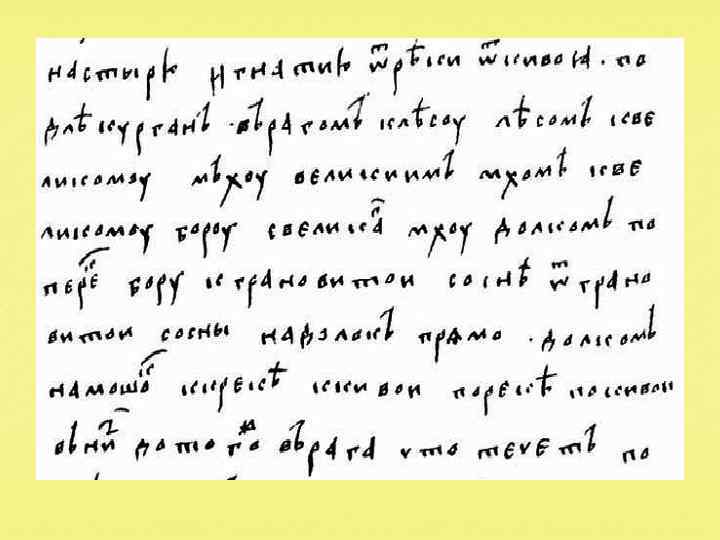 настырь игнатию ѿрѣки ѿкивоꙗ · по
длѣ курганъ · овърагомъ клѣсоу лѣсомъ ксве
ликомоу мъхоу великимъ мхомъ ксве
ликомоу бороу свеликаⷢ мхоу долкомъ по
переⷦ бору кграновитои соснѣ ѿграно
витои сосны надолокъ прямо · долкомъ
намошоⷦ крекѣ ккивои порекѣ покивои
внⷥи дотогоⷤ овърага что течетъ по